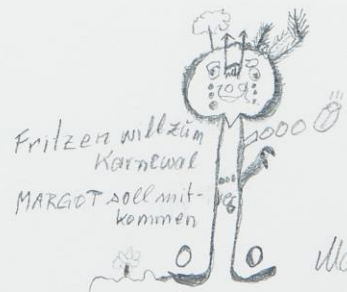 Fritzen will zum
Karnewal
MARGOT soll mit-
kommen